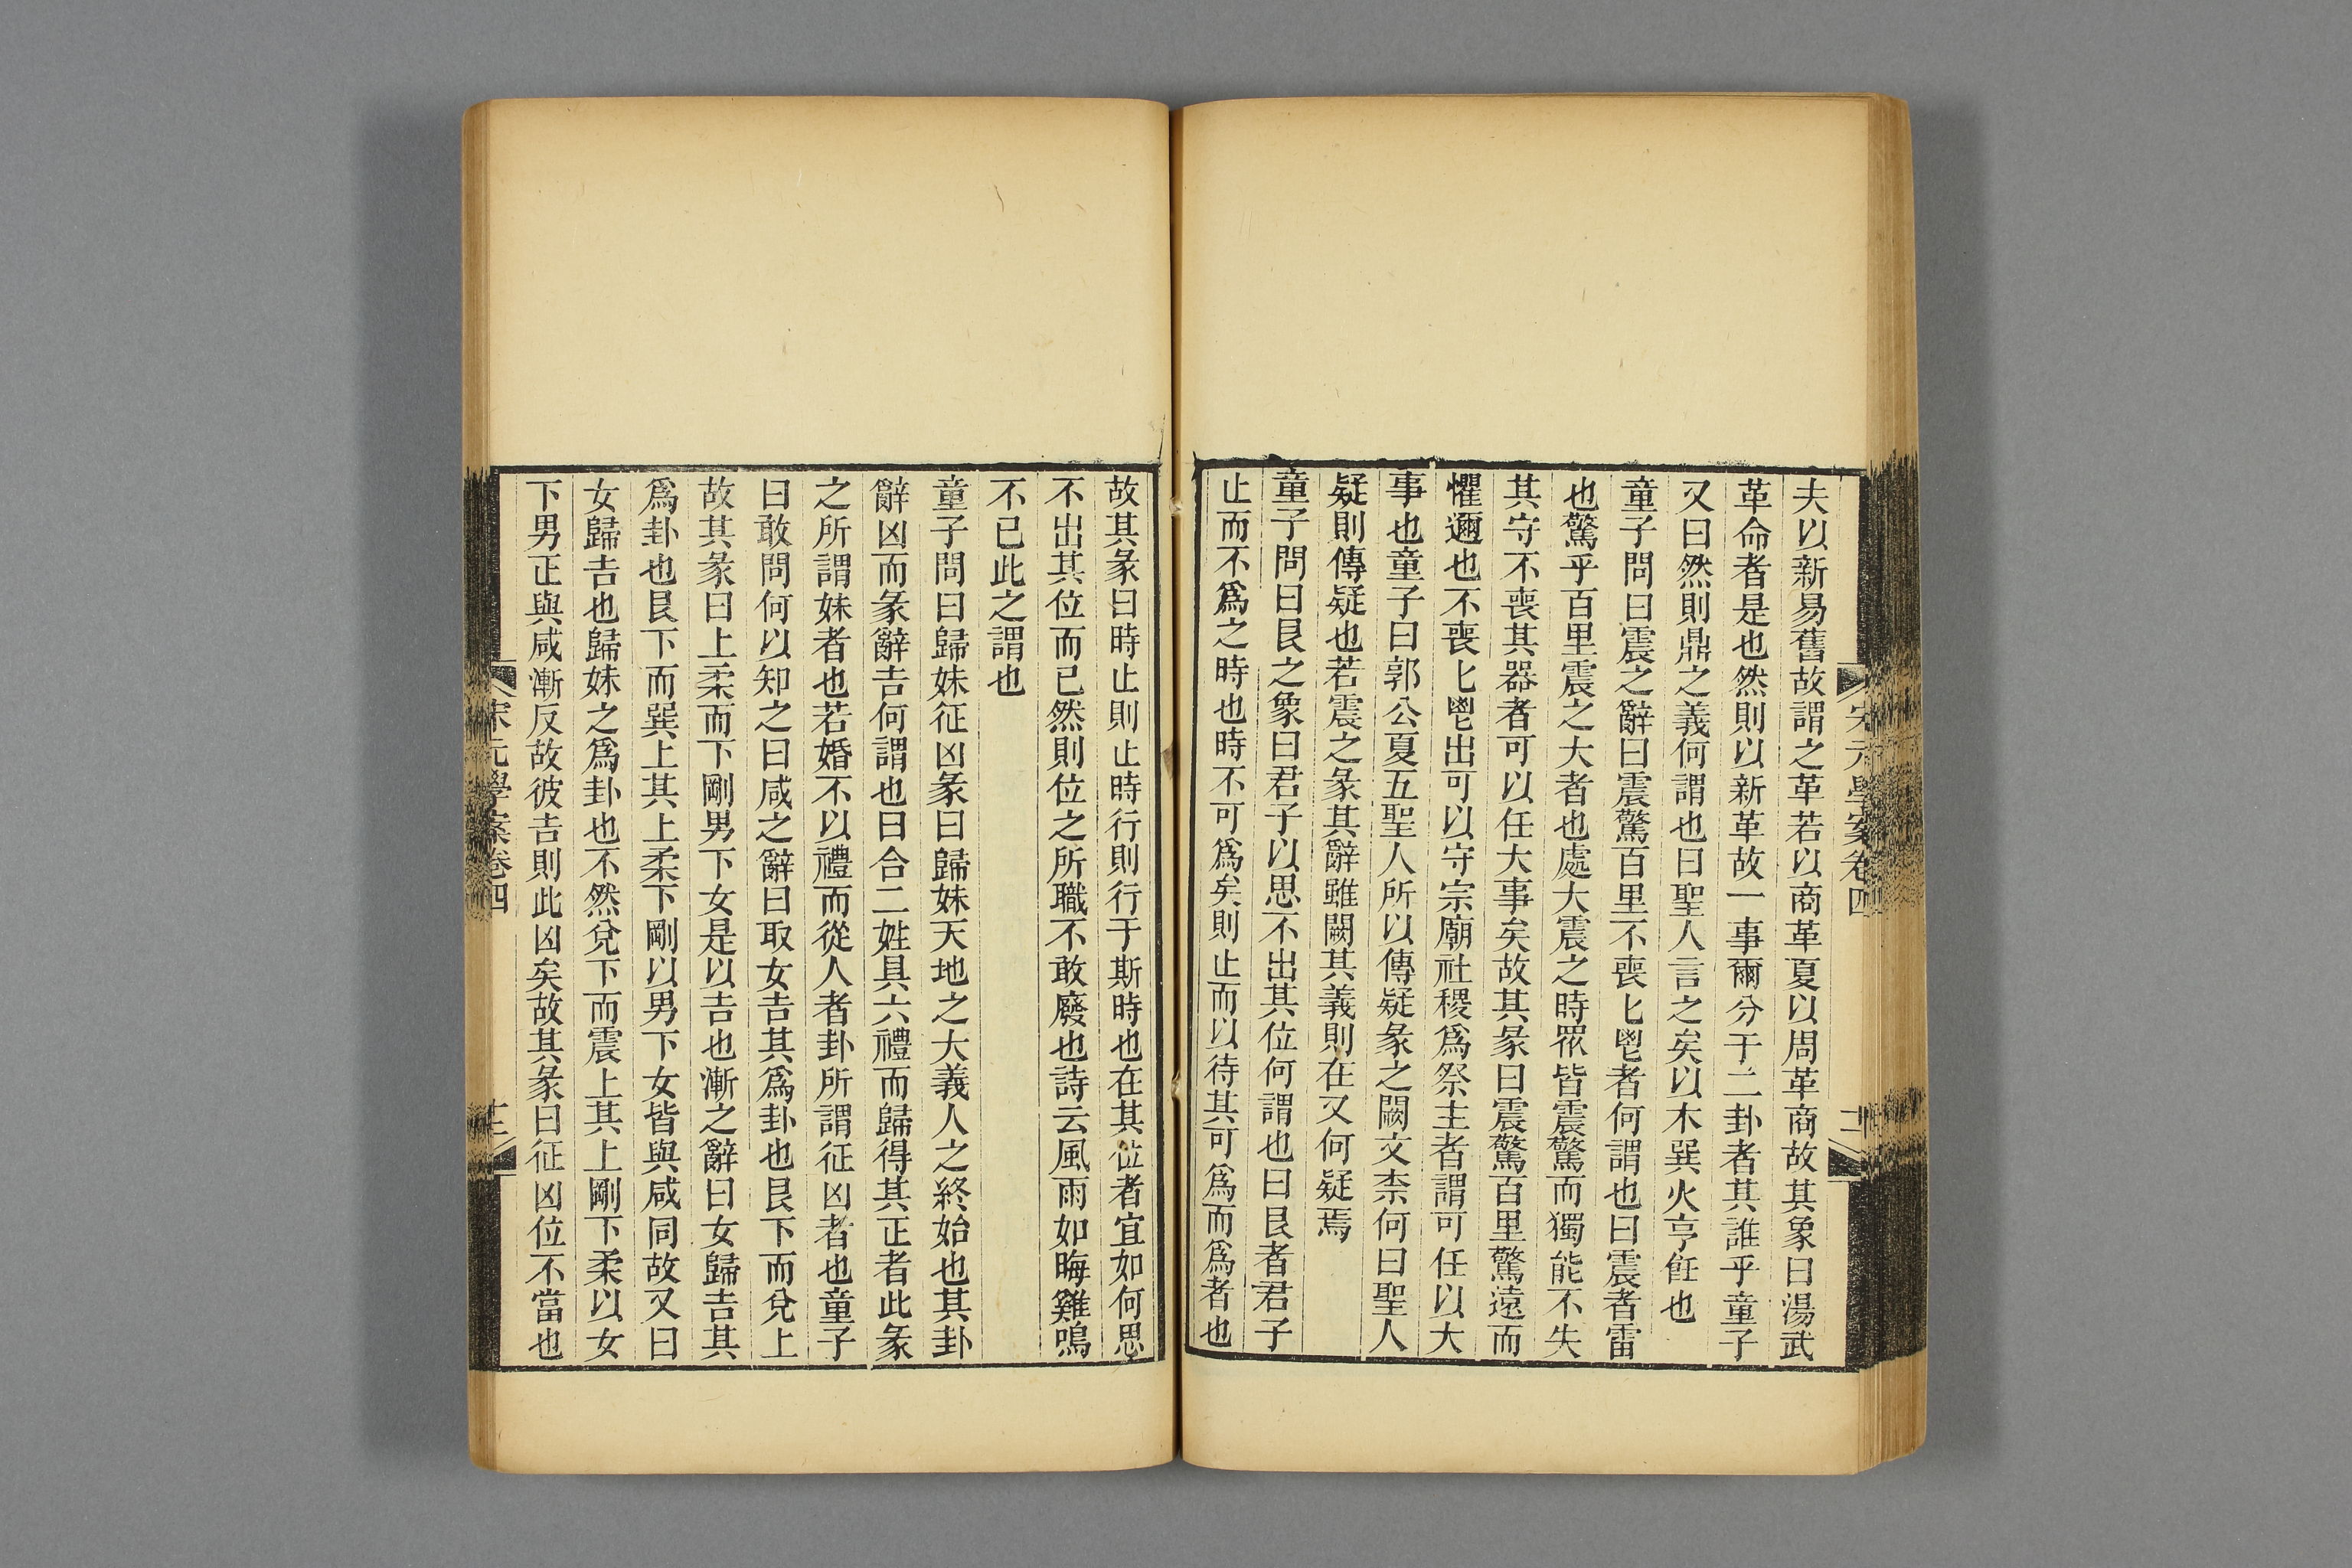 宋元學案卷四
十一
夫以新易舊故謂之革若以商革夏以周革商故其象曰湯武
革命者是也然則以新革故一事爾分于二卦者其誰乎童子
又曰然則鼎之義何謂也曰聖人言之矣以木巽火亨飪也
童子問曰震之辭曰震驚百里不喪匕鬯者何謂也曰震者雷
也驚乎百里震之大者也處大震之時眾皆震驚而獨能不失
其守不喪其器者可以任大事矣故其彖曰震驚百里驚遠而
懼邇也不喪匕鬯出可以守宗廟社稷為祭主者謂可任以大
事也童子曰郭公夏五聖人所以傳疑彖之闕文柰何曰聖人
疑則傳疑也若震之彖其辭雖闕其義則在又何疑焉
童子問曰艮之象曰君子以思不出其位何謂也曰艮者君子
止而不爲之時也時不可爲矣則止而以待其可爲而爲者也
故其彖曰時止則止時行則行于斯時也在其位者宜如何思
不出其位而已然則位之所職不敢廢也詩云風雨如晦雞鳴
不已此之謂也
童子問曰歸妹征凶彖曰歸妹天地之大義人之終始也其卦
辭凶而彖辭吉何謂也曰合二姓具六禮而歸得其正者此彖
之所謂妹者也若婚不以禮而從人者卦所謂征凶者也童子
曰敢問何以知之曰咸之辭曰取女吉其爲卦也艮下而兌上
故其彖曰上柔而下剛男下女是以吉也漸之辭曰女歸吉其
爲卦也艮下而巽上其上柔下剛以男下女皆與咸同故又曰
女歸吉也歸妹之爲卦也不然兌下而震上其上剛下柔以女
下男正與咸漸反故彼吉則此凶矣故其彖曰征凶位不當也
宋元學案卷四